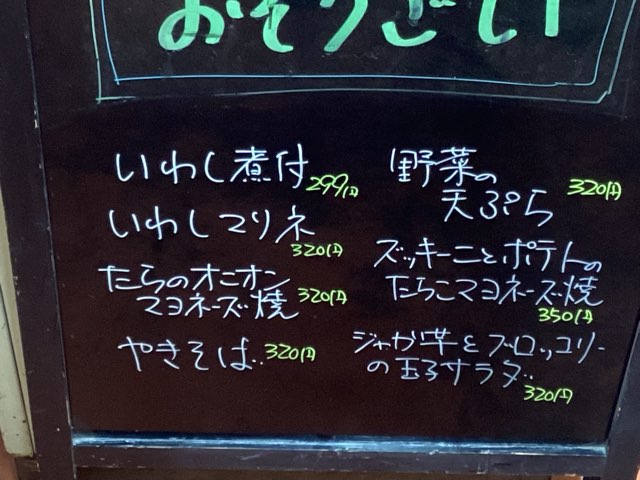 おそうざい
いわし煮付 299円
いわしマリネ
320円
たらのオニオン
マヨネーズ焼 320円
やきそば 320円
野菜の
天ぷら 320円
ズッキーニとポテトの
たらこマヨネーズ焼
350円
ジャガ芋とブロッコリー
の玉子サラダ
320円